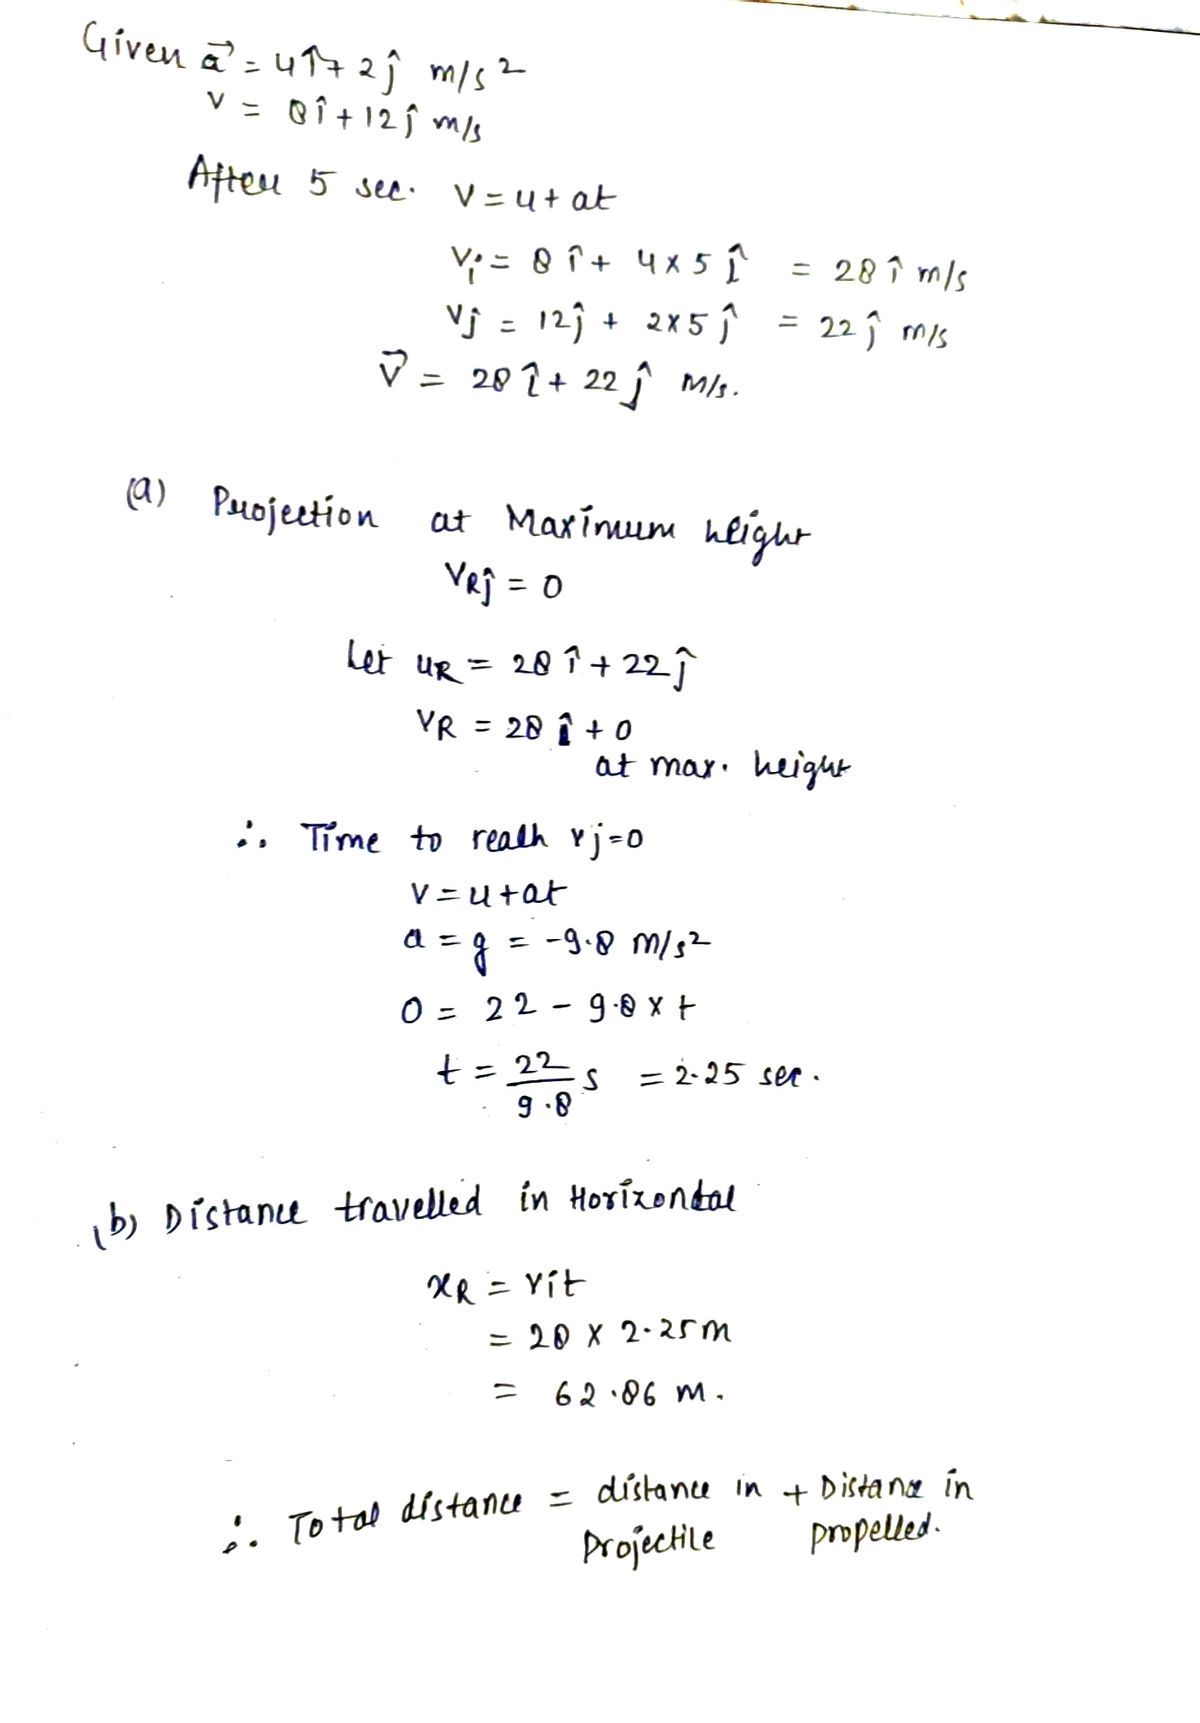 Given a⃗ = 4î + 2ĵ m/s²
v = 8î + 12ĵ m/s
After 5 sec. v = u + at
vi = 8 î + 4 x 5 î = 28 î m/s
vĵ = 12ĵ + 2x5 ĵ = 22 ĵ m/s
V⃗ = 28 î + 22 ĵ m/s.
(a) Projection at Maximum height
VRĵ = 0
Let uR = 28 î + 22 ĵ
VR = 28 î + 0
at max. height
∴ Time to reach vj=0
v = u + at
a = g = -9.8 m/s²
0 = 22 - 9.8 x t
t = 22/9.8 s = 2.25 sec.
(b) Distance travelled in Horizontal
xR = vit
= 28 x 2.25 m
= 62.86 m.
∴ Total distance = distance in + Distance in
projectile propelled.